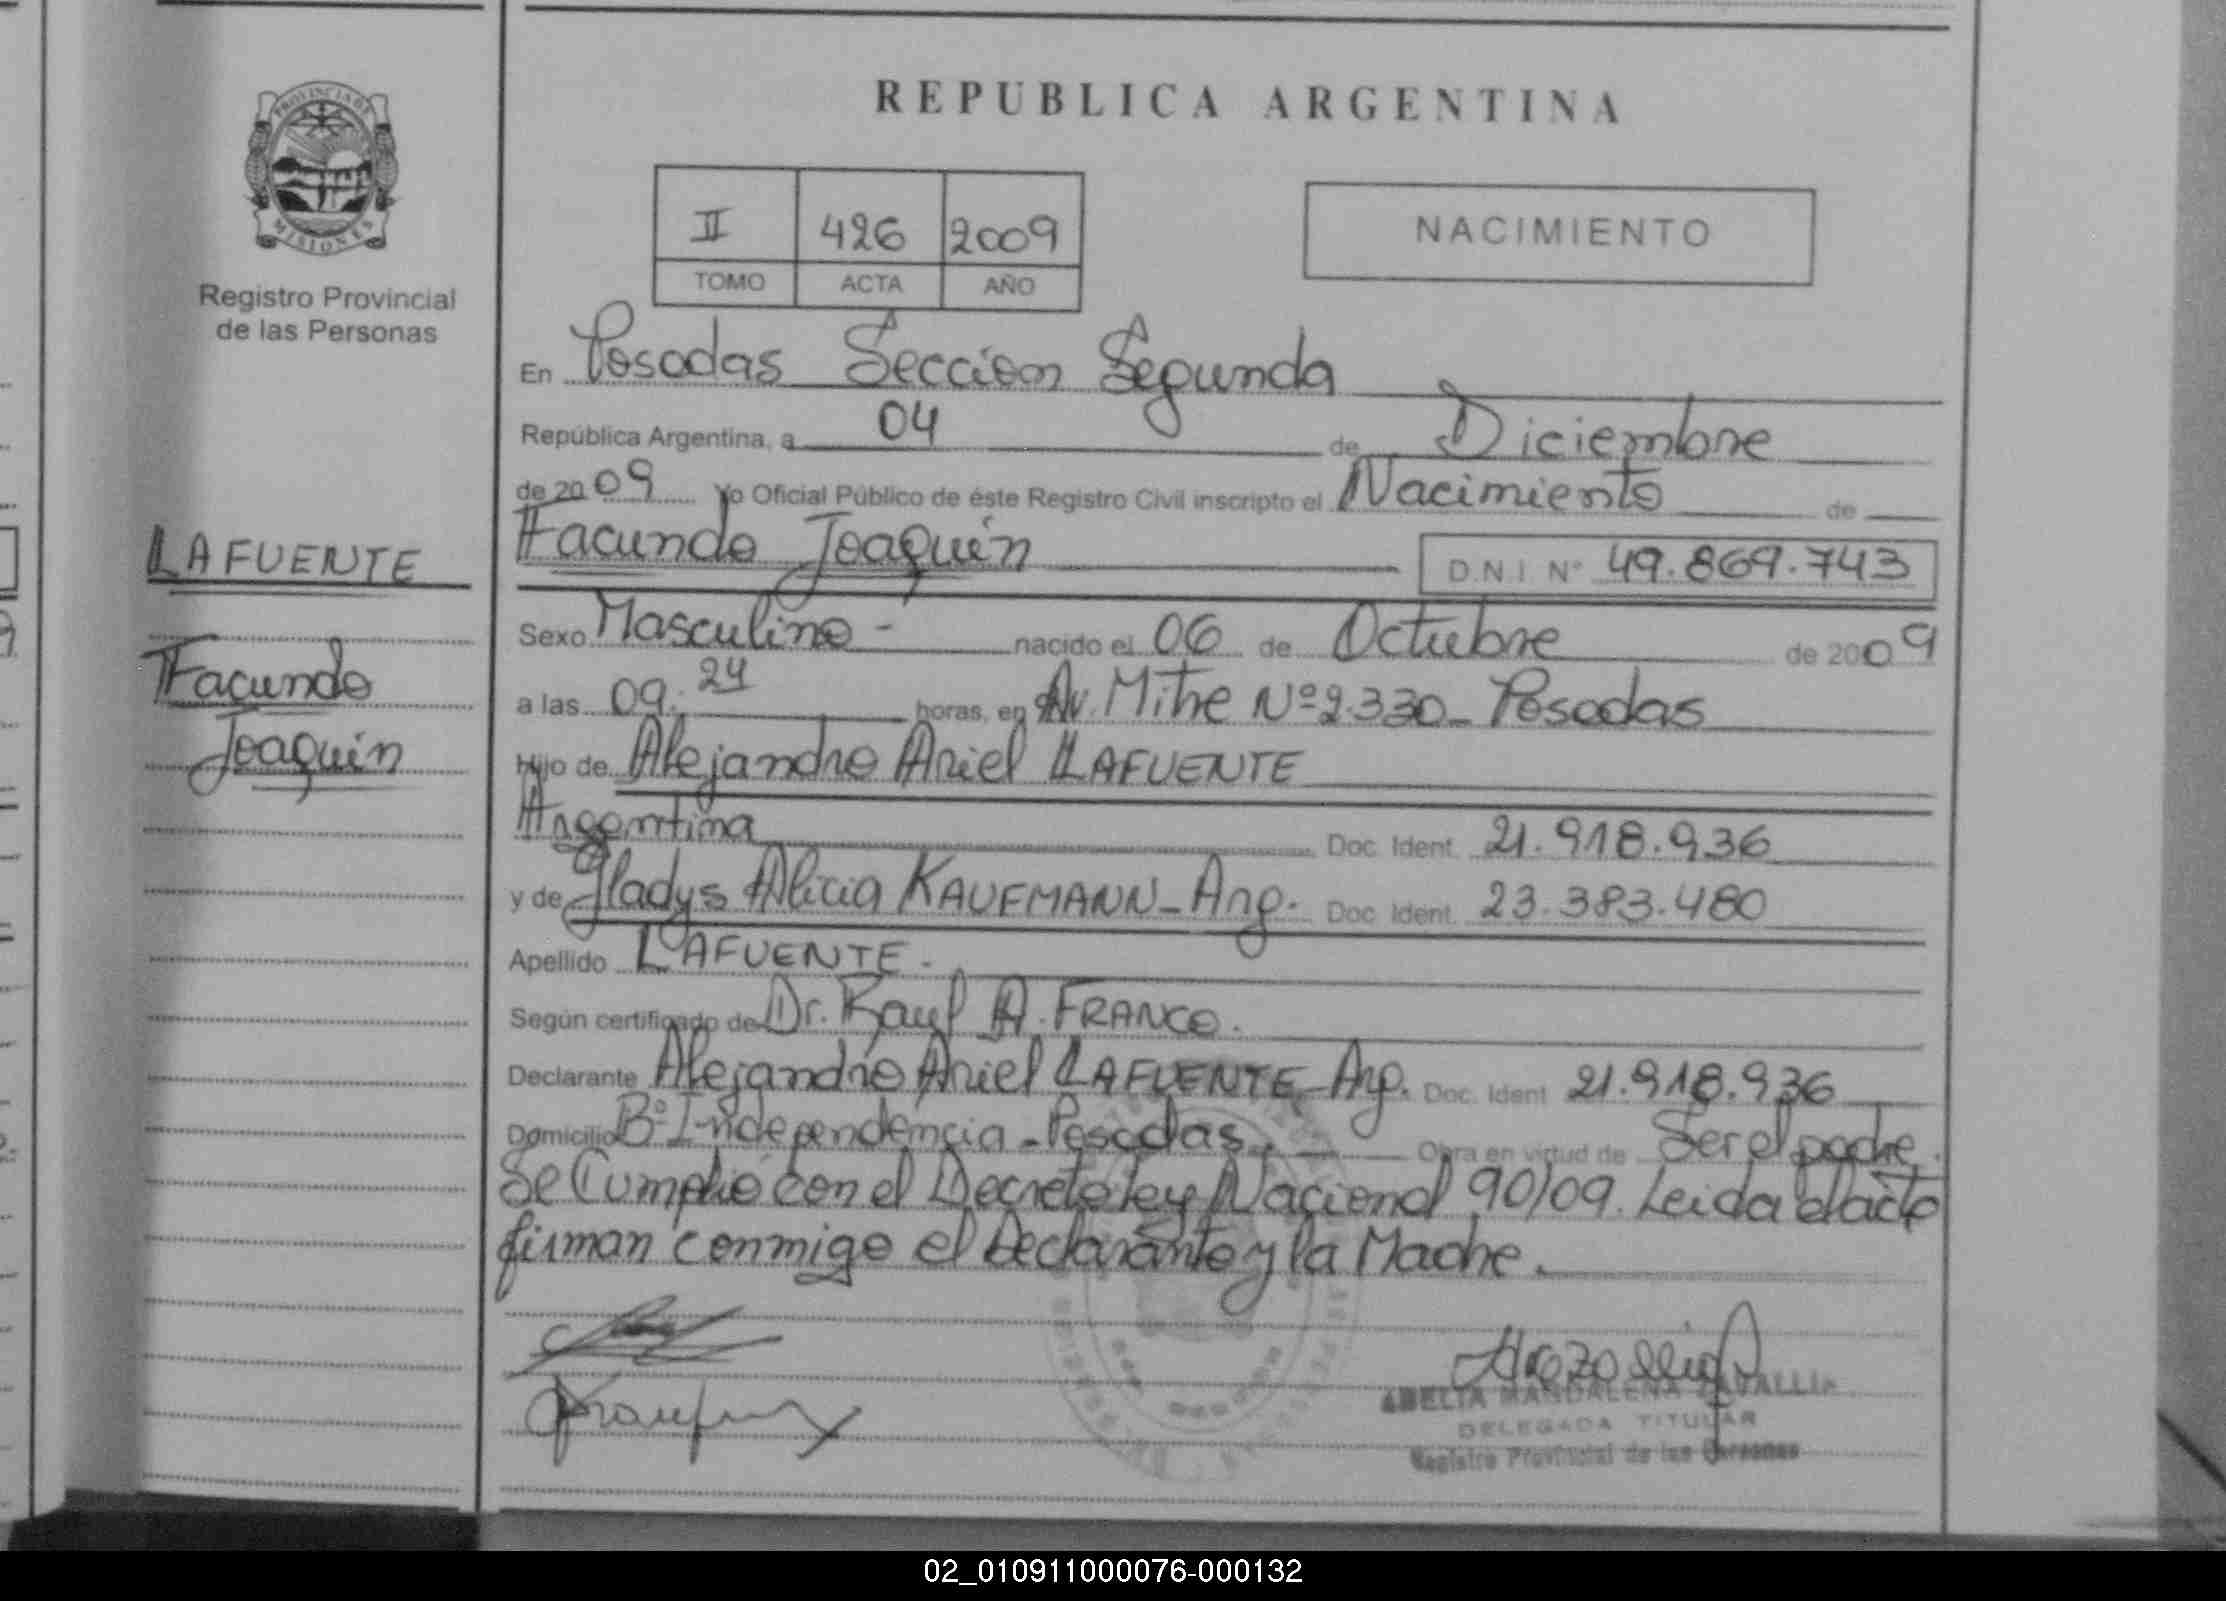 REPUBLICA ARGENTINA
PROVINCIA DE
MISIONES
Registro Provincial
de las Personas
II 426 2009
TOMO ACTA AÑO
NACIMIENTO
En Posadas Seccion Segunda
República Argentina, a 04 de Diciembre
de 2009 Yo Oficial Público de éste Registro Civil inscripto el Nacimiento de
Facundo Joaquín
D.N.I. Nº 49.869.743
LAFUENTE
Facundo
Joaquín
Sexo Masculino - nacido el 06 de Octubre de 2009
a las 09:24 horas, en Av. Mitre Nº 2.330 - Posadas
Hijo de Alejandro Ariel LAFUENTE
Argentina Doc. Ident. 21.918.936
y de Gladys Alicia KAUFMANN - Arg. Doc. Ident. 23.383.480
Apellido LAFUENTE.
Según certificado de Dr. Raul A. FRANCO.
Declarante Alejandro Ariel LAFUENTE Arg. Doc. Ident 21.918.936
Domicilio Bº Independencia - Posadas. Obra en virtud de Ser el padre.
Se Cumplió con el Decreto ley Nacional 90/09. Leida el acto
firman conmigo el Declarante y la Madre.
AMELIA MAGDALENA
DELEGADA TITULAR
Registro Provincial de las Personas
02_010911000076-000132